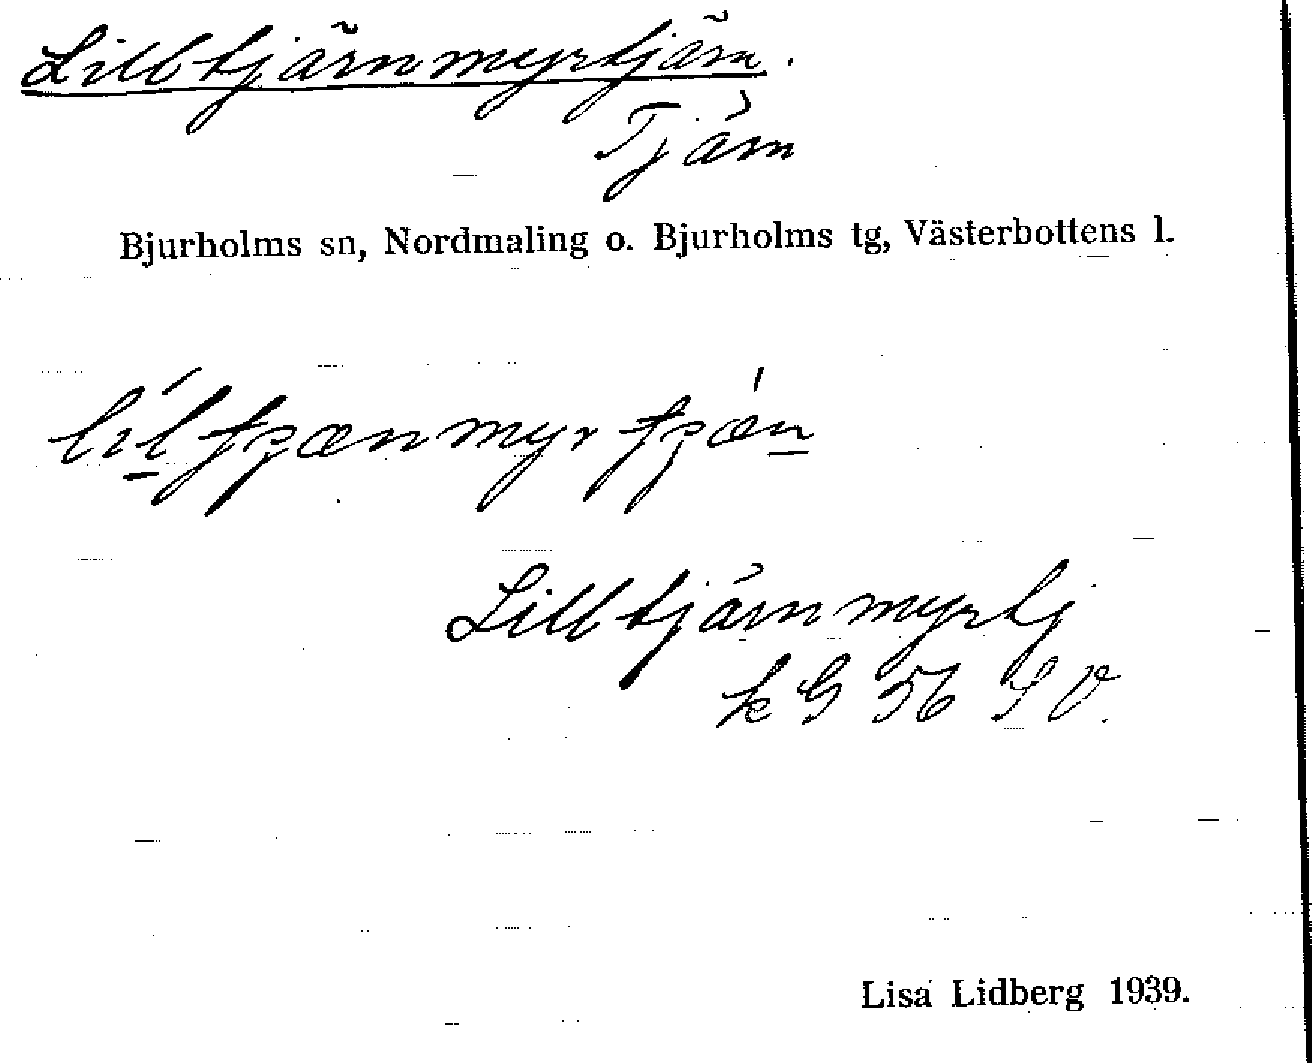 Lilltjärnmyrtjärn.
Tjärn
Bjurholms sn, Nordmaling o. Bjurholms tg, Västerbottens l.
Lilltjärnmyrtj
k G 56 SV.
Lisa Lidberg 1939.